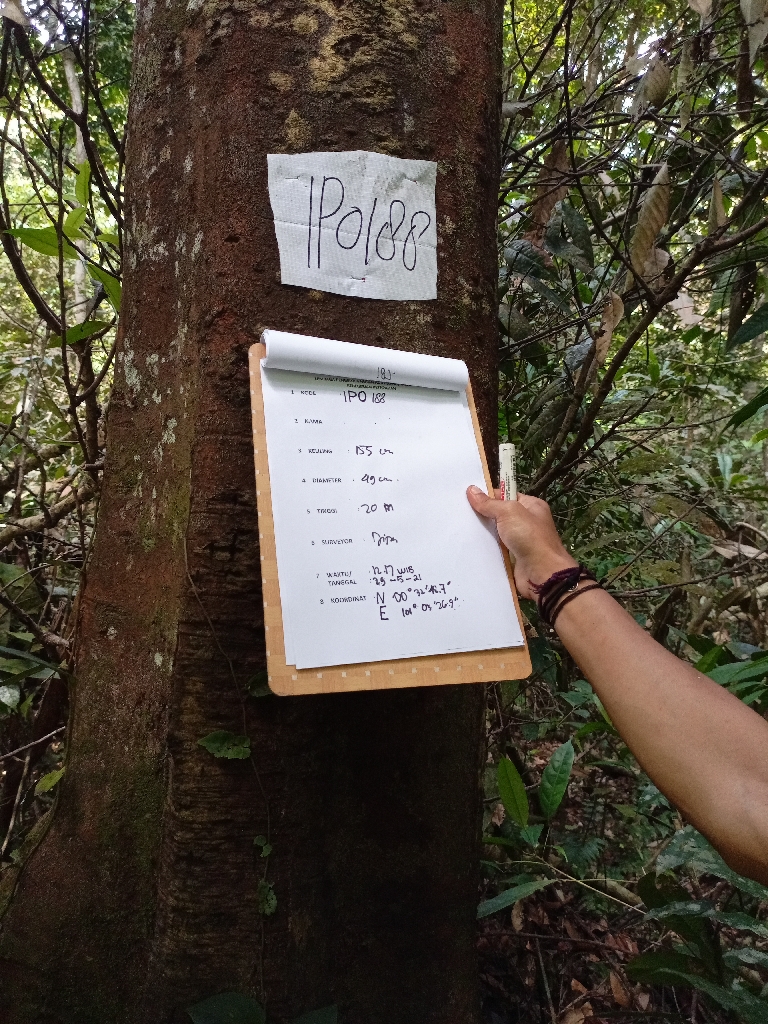 IPO188
188
1 KODE : IPO 188
2 NAMA :
3 KELILING : 155 cm
4 DIAMETER : 49 cm
5 TINGGI : 20 M
6 SURVEYOR :
7 WAKTU/ : 12.17 WIB
TANGGAL : 29-5-21
8 KOORDINAT : N 00° 32' 48.7"
E 101° 03' 26.9"